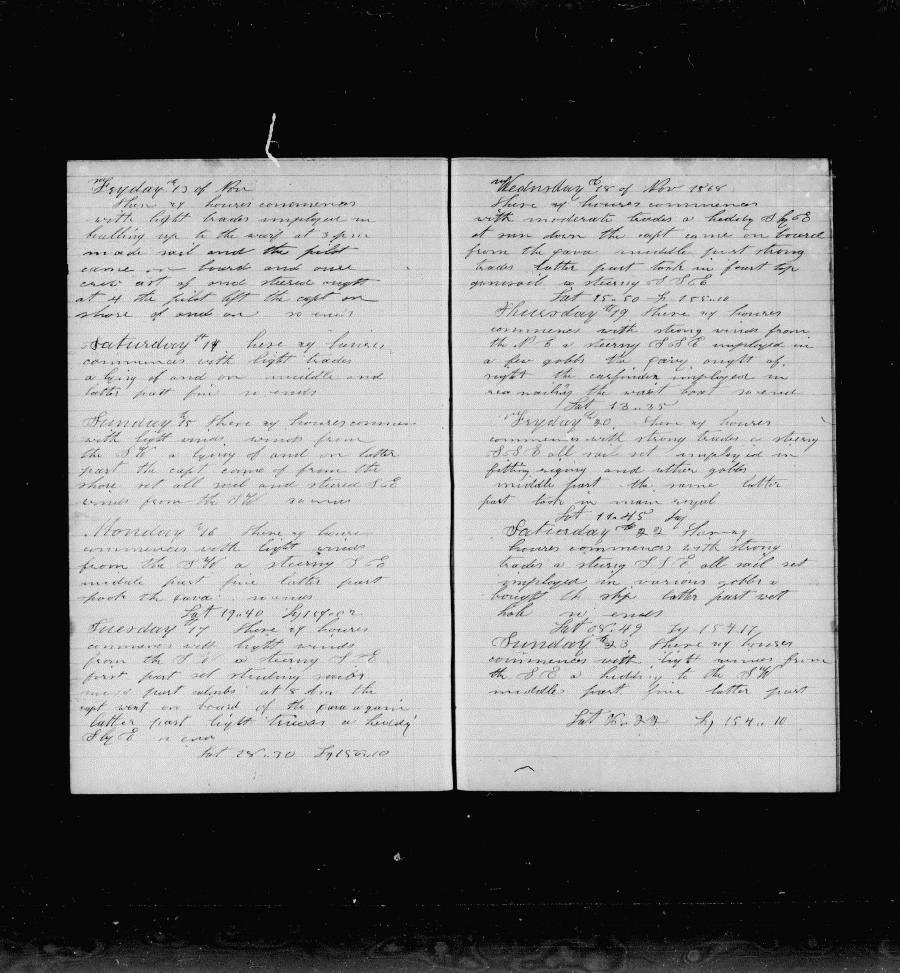 Fryday th 13 of Nov
these 24 houres commences
with light trades imployed in
halling up to the warf at 3 p m
made sail and the pilot
came on board and
crew of and steered ought
at 4 the pilot left the capt on
shore of and on so ends
Saturday th 14 hese 24 houres
commences with light trades
a lying of and on middle and
latter part fin so ends
Sunday th 15 these 24 houres commen
with light winds winds from
the S W a lying of and on latter
part the capt came of from the
shore set all sail and steired S E
winds from the S W so ends
Monday th 16 these 24 houre
commences with light winds
from the S W a steering S E
middle part fine latter part
spock the Java so ends
Lat 19..40
Tuesday th 17 these 24 houres
commences with light winds
from the S W a steering S E
first part set studing sails
part calmb at 8 A m the
capt went on board of the Java again
latter part light trades a heedig
S by E so ends
Lat Lg 155..10
Wednsday th 18 of Nov 1868
these 24 houres commences
with moderate trades a hedeby S by E
at sun down the capt came on board
from the Java middle part strong
trades latter part took in fourt top
gansail a steering S S E
Lat 15..50 Lg 155..10
Thursday th 19 these 24 houres
commences with strong winds from
the N E a steering S S E imployed in
a few gobbs the ought of
right the carpinder imployed in
rea nailing the waist boat so end
Lat 13..35
Fryday th 20 these 24 houres
commences with strong trades a steering
S S E all sail set imployed in
fitting and uther gobbs
middle part the same latter
part took in main royal
Lat 11..45 Lg
Saturday th 22
houres commences with strong
trades a steering S S E all sail set
imployed in various gobbs a
bought the ship latter part wet
hold so ends
Lat 08..49 Lg 154 17
Sunday th 23 these 24 houres
commences with light winds from
the S E a hedding to the S W
middle part fine latter part
Lat Lg 154..10